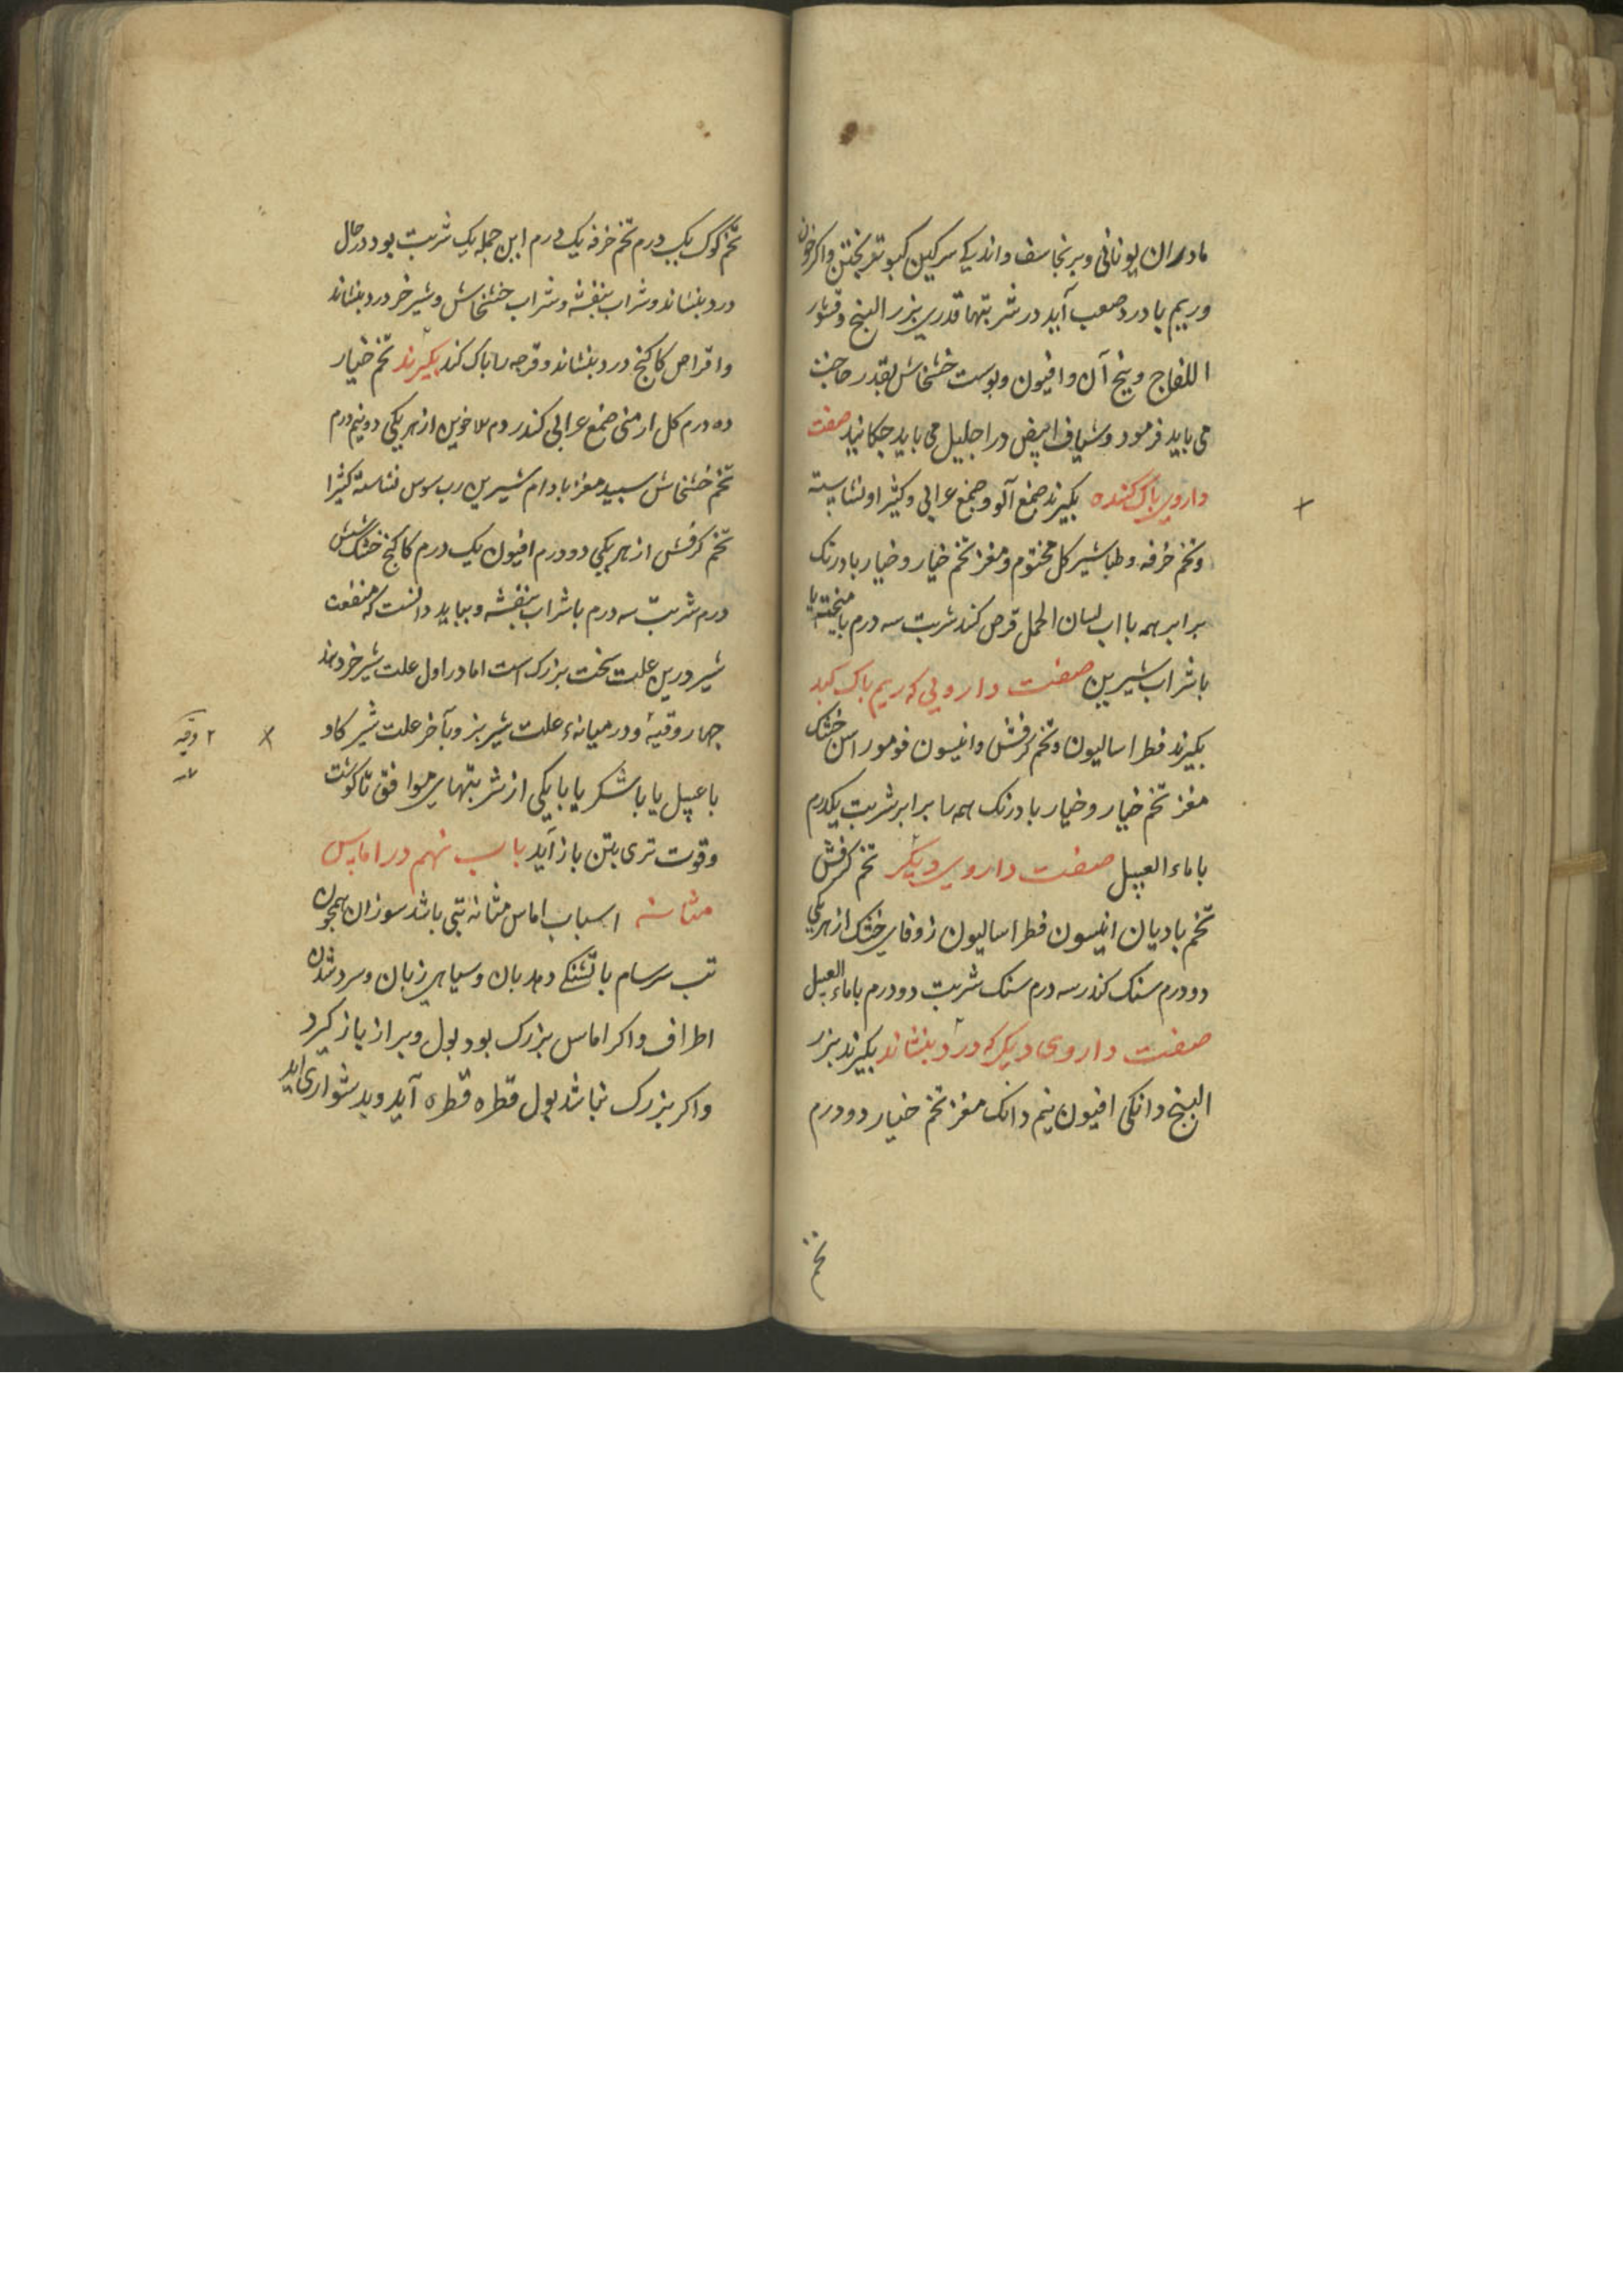 مادران یونانی وبرنجاسف واندکی سرکین کبوتر پختن واکر خون
وریم با درد صعب آید در شربتها قدری بزر البنج وقشور
اللفاح وبیخ آن وافیون وپوست خشخاش بقدر حاجت
می باید فرمود وشیاف ابیض در احلیل می باید چکانید صفت
داروی پاک کننده بکیرند صمغ آلو وصمغ عرابی وکثیرا ونشاسته
وتخم خرفه وطباشیر کل مختوم ومغز تخم خیار وخیار بادرنک
برابر همه با اب لسان الحمل قرص کند شربت سه درم با میپخته یا
با شراب شیرین صفت دارویی که ریم پاک کند
بکیرند فطراسالیون وتخم کرفش وانیسون فو مو راسن خشک
مغز تخم خیار وخیار بادرنک همه را برابر شربت یکدرم
با ماء العسل صفت داروی دیکر تخم کرفش
تخم بادیان انیسون فطراسالیون زوفای خشک از هر یکی
دو درم سنک کندر سه درم سنک شربت دو درم با ماء العسل
صفت داروی دیکر که درد بنشاند بکیرند بزر
البنج دانکی افیون نیم دانک مغز تخم خیار دو درم
تخم
تخم کوک یک درم تخم خرفه یک درم این جمله یک شربت بود در حال
درد بنشاند وشراب بنفشه وشراب خشخاش وشیر خر درد بنشاند
واقراص کاکنج درد بنشاند وقرحه را پاک کند بکیرند تخم خیار
ده درم کل ارمنی صمغ عرابی کندر دم الاخوین از هر یکی دو نیم درم
تخم خشخاش سپید مغز بادام شیرین رب سوس نشاسته کثیرا
تخم کرفش از هر یکی دو درم افیون یک درم کاکنج خشک شش
درم شربت سه درم با شراب بنفشه وبباید دانست که منفعت
شیر درین علت سخت بزرک است اما در اول علت شیر خر دهند
چهار وقیه ودر میانهٔ علت شیر بز وبآخر علت شیر کاو
۲ وقیه
با عسل یا با شکر یا با یکی از شربتهای موافق تا کوشت
وقوت تری بتن باز آید باب نهم در اماس
مثانه اسباب اماس مثانه تبی باشد سوزان همچون
تب سرسام با تشنکی وهذیان وسیاهی زبان وسرد شدن
اطراف واکر اماس بزرک بود بول وبراز باز کیرد
واکر بزرک نباشد بول قطره قطره آید وبدشواری اید